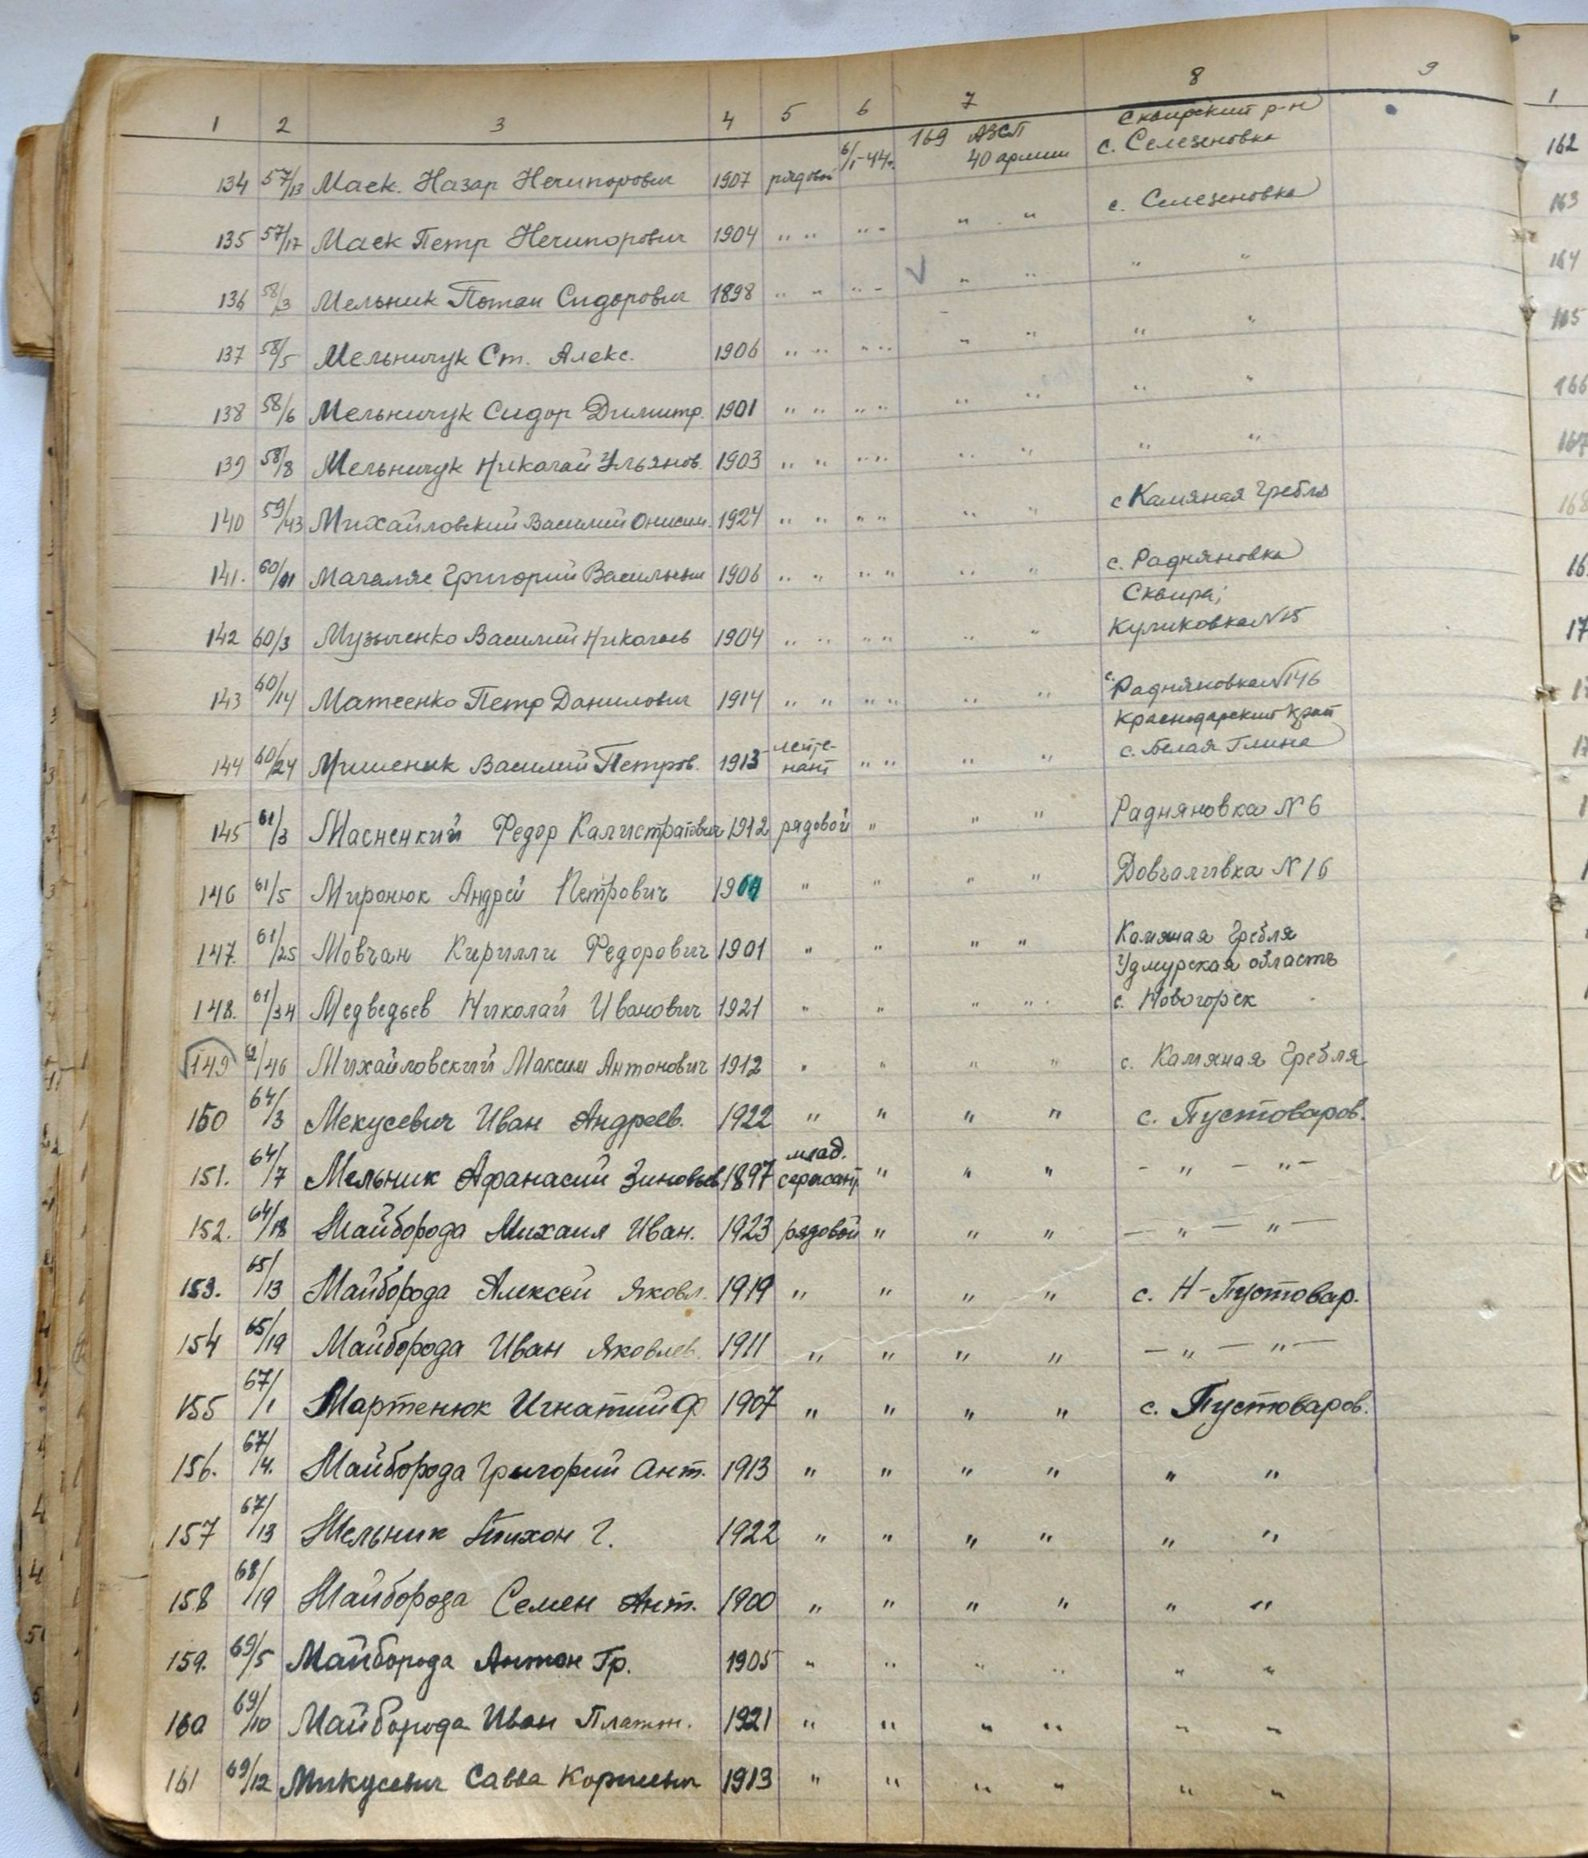 1 2 3 4 5 6 7 8 9
Сквирский р-н
134 57/13 Маек. Назар Нечипорович 1907 рядовой 6/1-44г. 169 АЗСП 40 армии с. Селезеновка
135 57/17 Маек Петр Нечипорович 1904 " " " " " " с. Селезеновка
136 58/3 Мельник Потап Сидорович 1898 " " " " ✓ " " " "
137 58/5 Мельничук Ст. Алекс. 1906 " " " " " " " "
138 58/6 Мельничук Сидор Димитр. 1901 " " " " " " " "
139 58/8 Мельничук Николай Ульянов. 1903 " " " " " " " "
140 59/43 Михайловский Василий Онисим. 1924 " " " " " " с Камяная Гребля
141. Григорий Васильевич 1906 " " " " " " с. Радняновка
Сквира;
142 60/3 Музыченко Василий Николаев 1904 " " " " " " Куликовка N15
143 60/14 Матеенко Петр Данилович 1914 " " " " " " с. Радняновка N146
Краснодарский край
144 60/24 Василий Петров. 1913 лейте-нант " " " " с. Белая Глина
145 61/3 Федор Калистратович 1912 рядовой " " " Радняновка N 6
146 61/5 Миронюк Андрей Петрович " " " " Довгаливка N 16
147. 61/25 Мовчан Кирилли Федорович 1901 " " " " Камяная Гребля
Удмурская область
148. 61/34 Медведьев Николай Иванович 1921 " " " " с. Новогорск
149 62/46 Михайловский Максим Антонович 1912 " " " " с. Камяная Гребля
150 64/3 Мекусевич Иван Андреев. 1922 " " " " с. Пустоваров.
151. 64/7 Мельник Афанасий Зиновьев 1897 млад. сержант " " " - " - " -
152. 64/18 Майборода Михаил Иван. 1923 рядовой " " " — " — " —
153. 65/13 Майборода Алексей Яковл. 1919 " " " " с. Н-Пустовар.
154 65/19 Майборода Иван Яковлев. 1911 " " " " — " — " —
155 67/1 Мартенюк Игнатий Ф. 1907 " " " " с. Пустоваров.
156. 67/4. Майборода Григорий Ант. 1913 " " " " " "
157 67/13 Мельник Тихон Г. 1922 " " " " " "
158 68/19 Майборода Семен Ант. 1900 " " " " " "
159. 69/5 Майборода Антон Гр. 1905 " " " " " "
160 69/10 Майборода Иван Платон. 1921 " " " " " "
161 69/12 Микусевич Савва 1913 " " " " " "
1
162
163
164
165
166
167
168